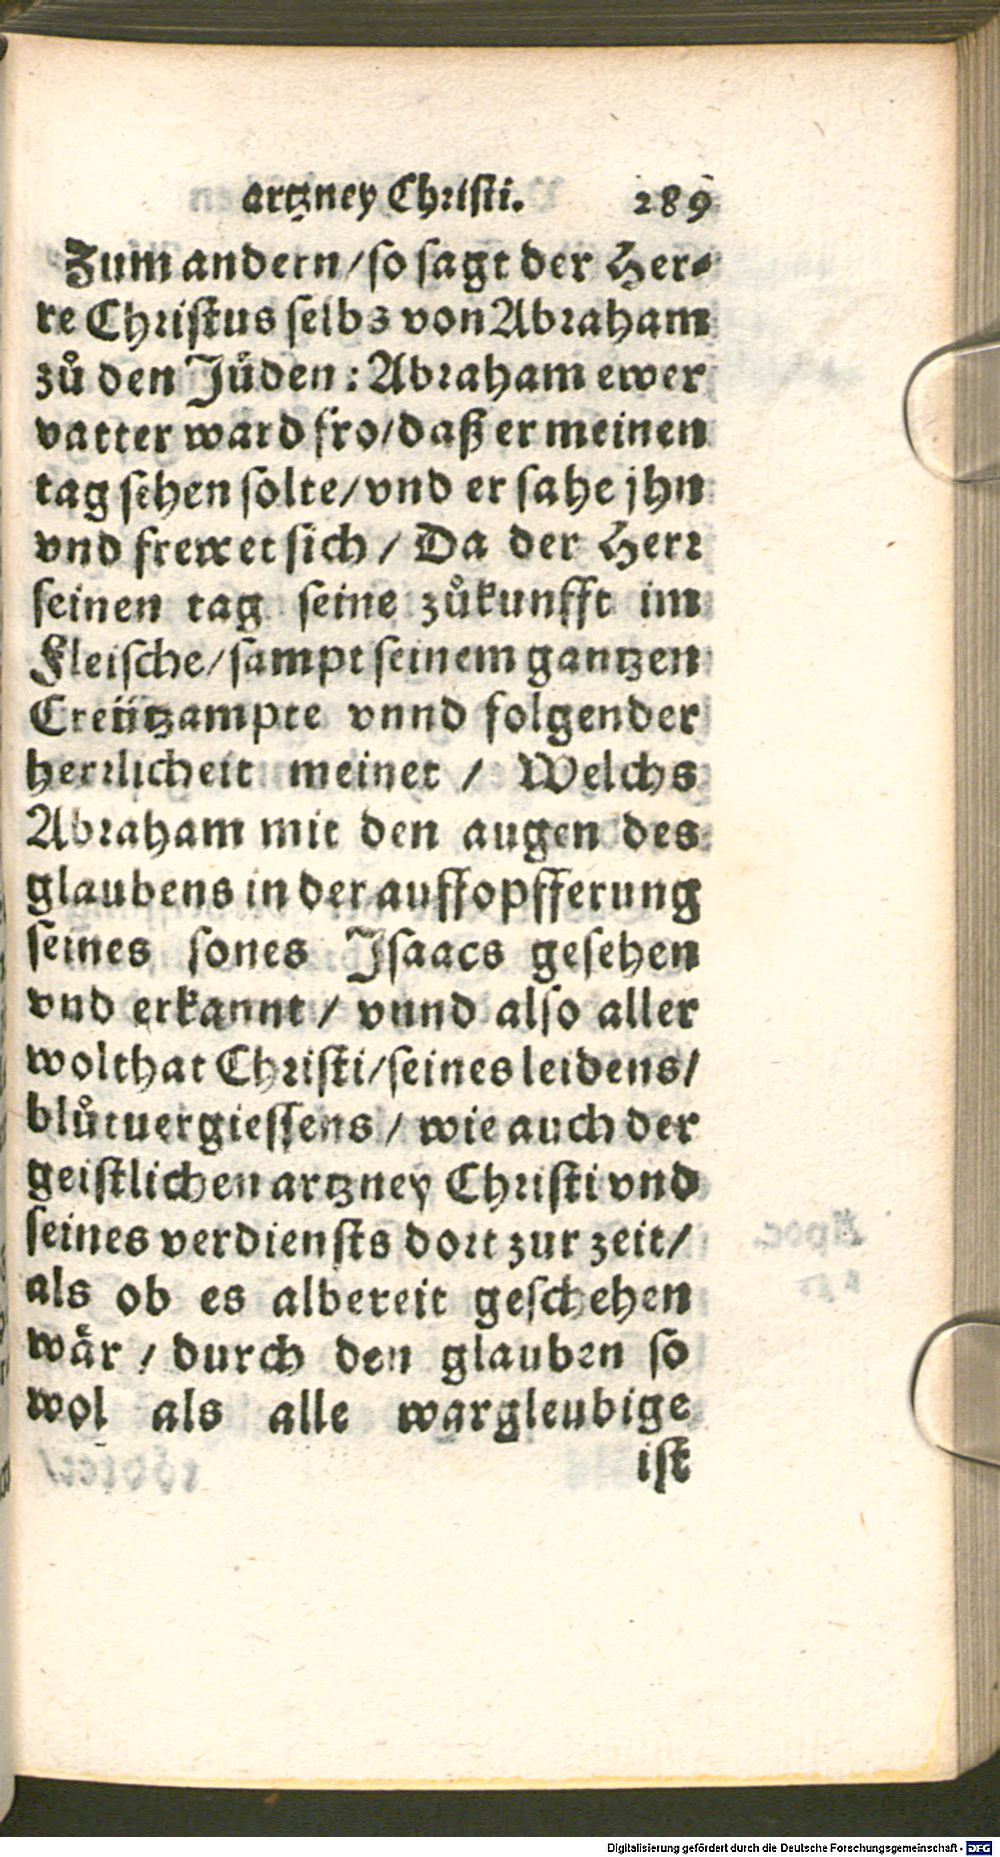 artzney Christi. 289
Zum andern/ so sagt der Her-
re Christus selbs von Abraham
zů den Jüden: Abraham ewer
vatter ward fro/ daß er meinen
tag sehen solte/ vnd er sahe jhn
vnd frewet sich/ Da der Herr
seinen tag seine zůkunfft im
Fleische/ sampt seinem gantzen
Creützampte vnnd folgender
herrlicheit meinet / Welchs
Abraham mit den augen des
glaubens in der auffopfferung
seines sones Jsaacs gesehen
vnd erkannt / vnnd also aller
wolthat Christi/ seines leidens/
blůtuergiessens / wie auch der
geistlichen artzney Christi vnd
seines verdiensts dort zur zeit/
als ob es albereit geschehen
wår / durch den glauben so
wol als alle wargleubige
ist
Digitalisierung gefördert durch die Deutsche Forschungsgemeinschaft - DFG